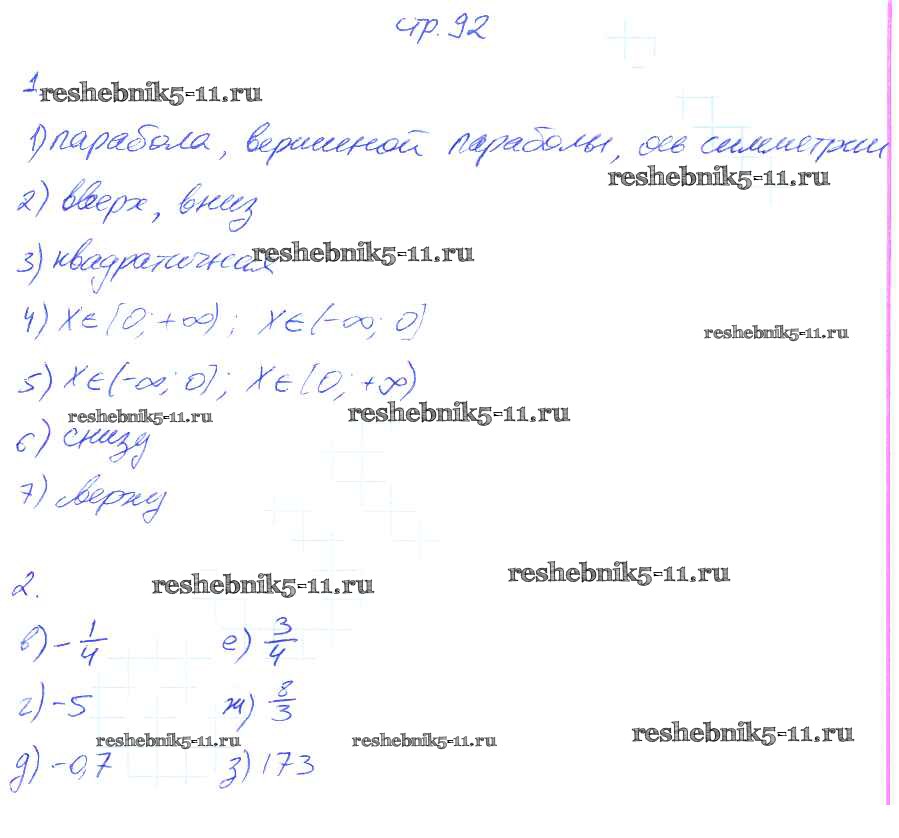 стр. 92
1. reshebnik5-11.ru
1) парабола, вершиной параболы, ось симметрии
reshebnik5-11.ru
2) вверх, вниз
3) квадратичная reshebnik5-11.ru
4) x∈[0; +∞); x∈(-∞; 0]
reshebnik5-11.ru
5) x∈(-∞; 0]; x∈[0; +∞)
reshebnik5-11.ru reshebnik5-11.ru
6) снизу
7) сверху
2. reshebnik5-11.ru reshebnik5-11.ru
в) -1/4 е) 3/4
г) -5 ж) 8/3
reshebnik5-11.ru reshebnik5-11.ru reshebnik5-11.ru
д) -0,7 з) 173